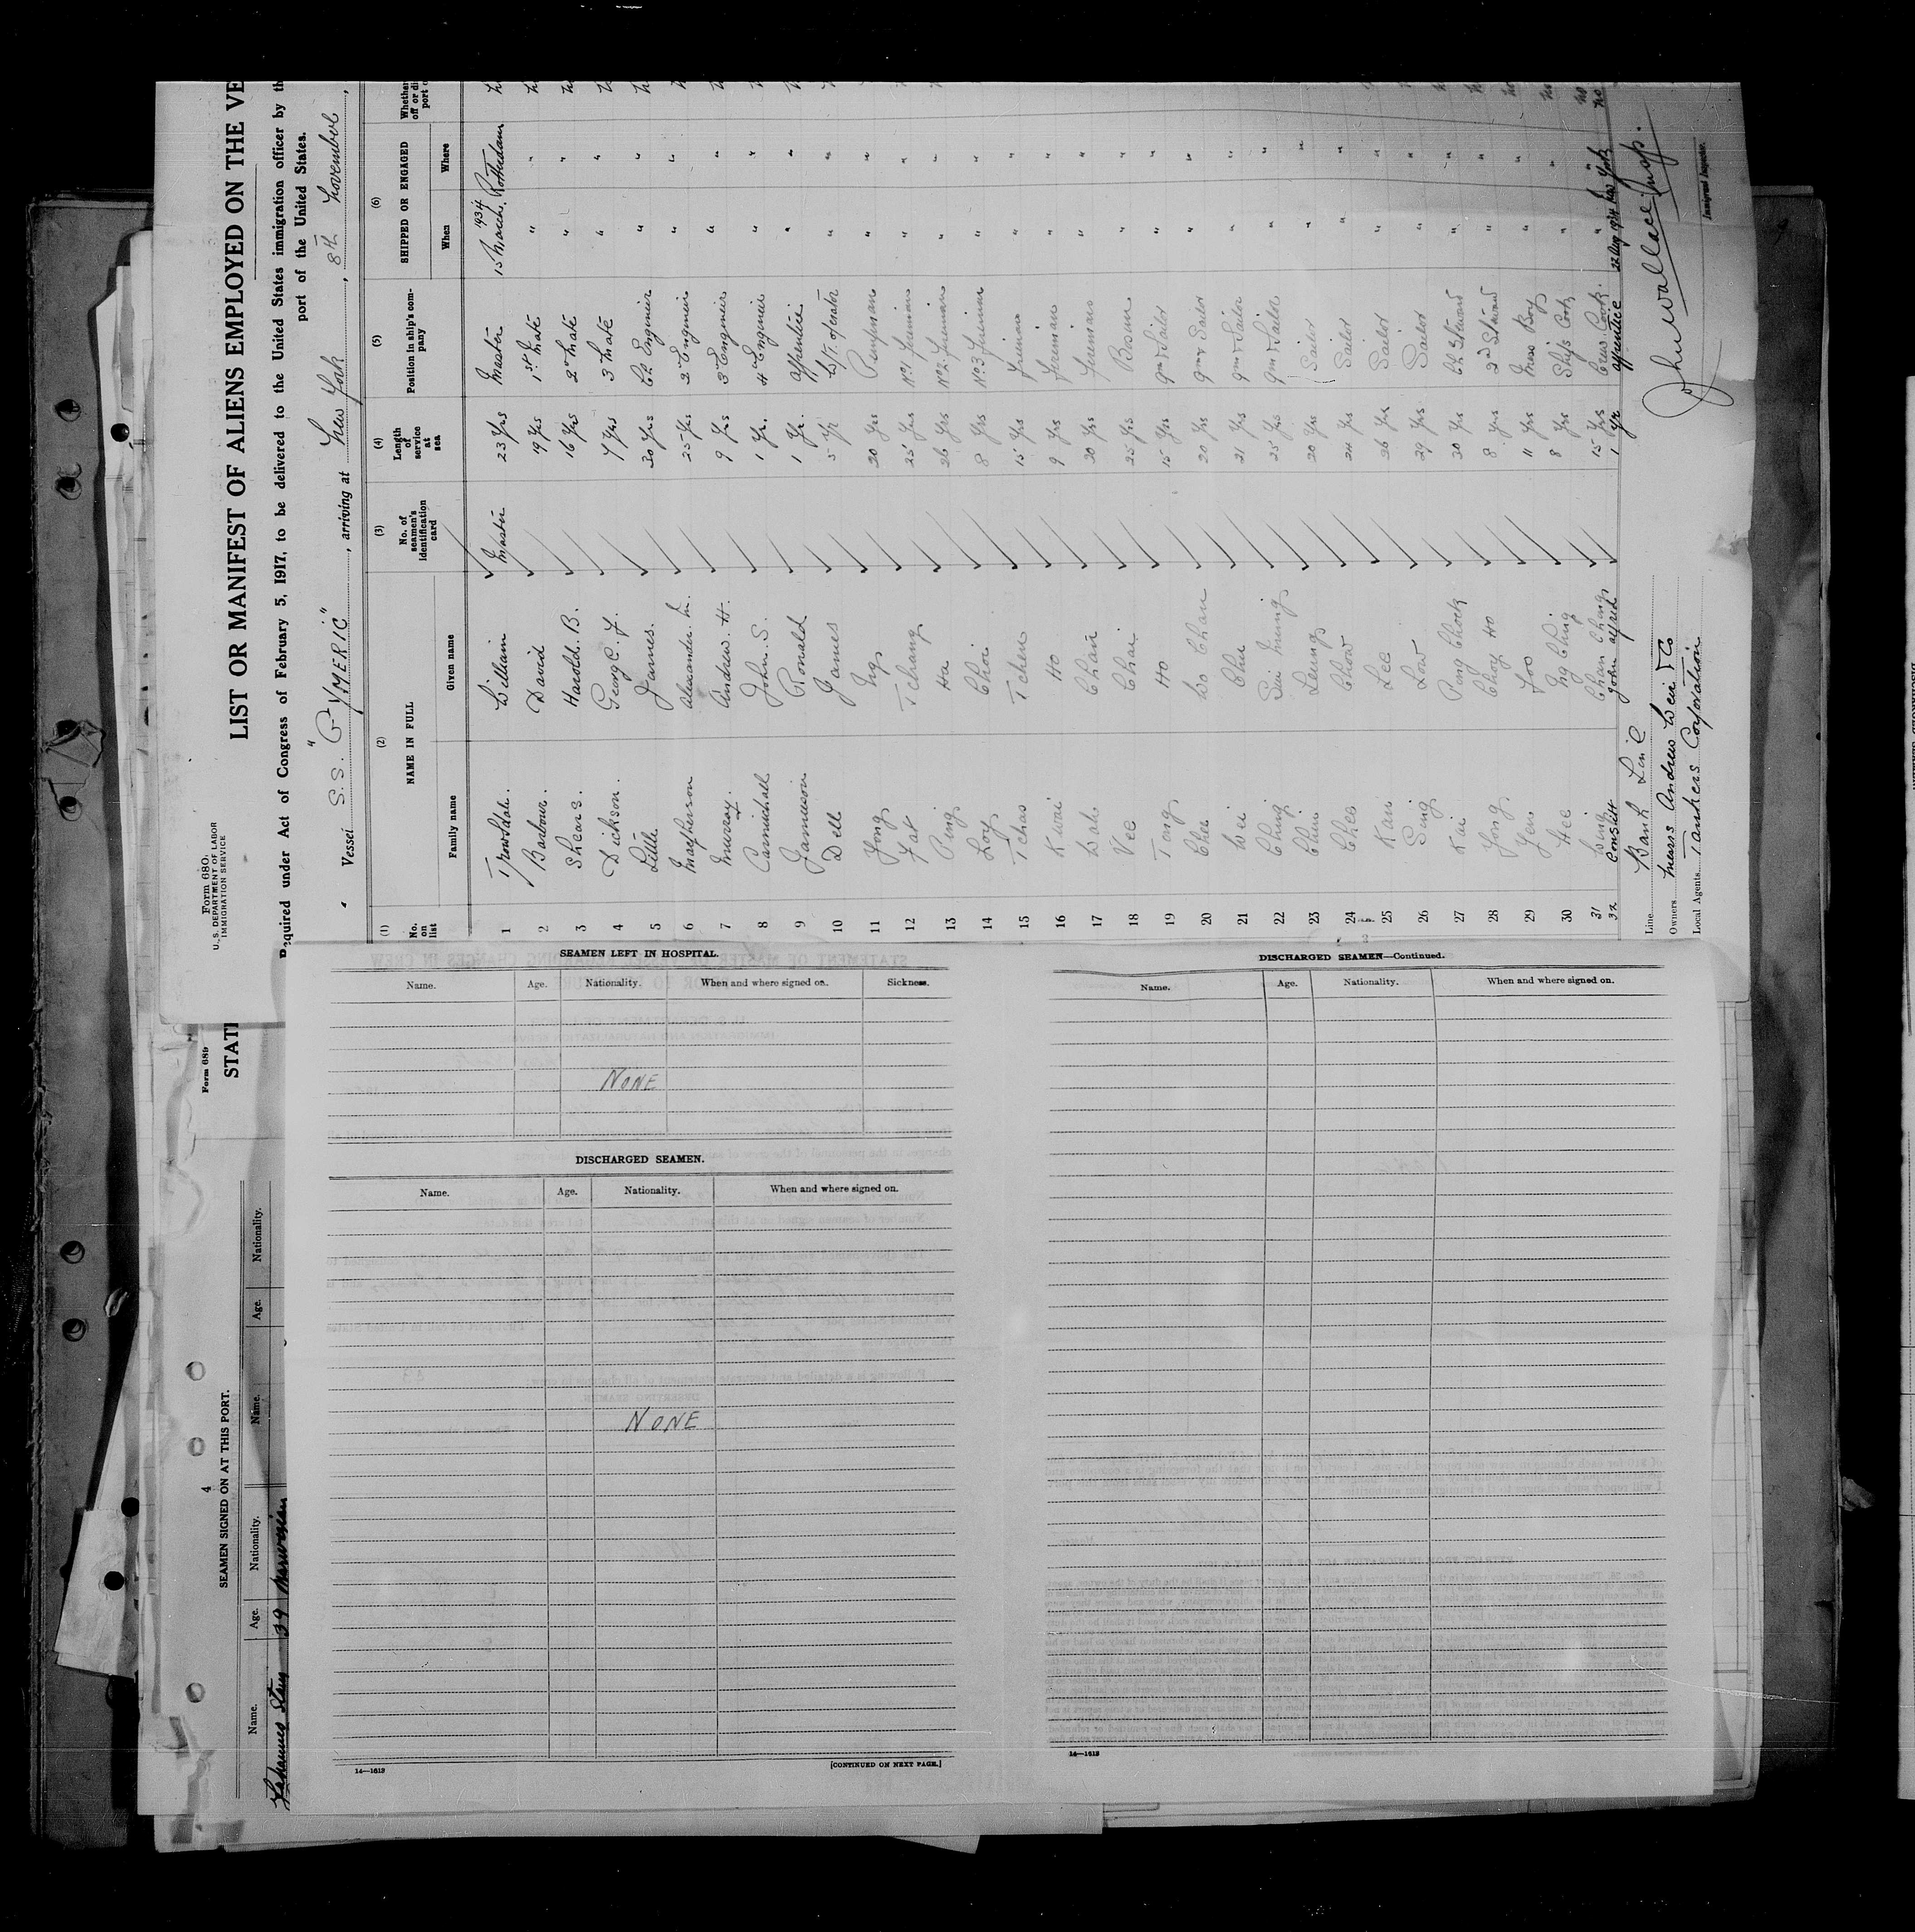 Form 680.
U. S. DEPARTMENT OF LABOR
IMMIGRATION SERVICE
LIST OR MANIFEST OF ALIENS EMPLOYED ON THE VE
Required under Act of Congress of February 5, 1917, to be delivered to the United States immigration officer by th
port of the United States.
Vessel S.S. "GYMERIC", arriving at New York, 8th November,
(1) (2) (3) (4) (5) (6)
No. on list NAME IN FULL No. of seamen's identification card Length of service at sea Position in ship's company SHIPPED OR ENGAGED Whether
Family name Given name When Where
1 Trowsdale. William Master 23 Yrs Master 15 March. 1934 Rotterdam
2 Barbour. David 19 Yrs 1st Mate " "
3 Shears. Harold. B. 16 Yrs 2nd Mate " "
4 Dickson. George C. F. 7 Yrs 3 Mate " "
5 Little James. 30 Yrs Ch. Engineer " "
6 Macpherson Alexander. M. 25 Yrs 2nd Engineer " "
7 Murray. Andrew. H. 9 Yrs 3rd Engineer " "
8 Carmichall John. S. 1 Yr. 4th Engineer " "
9 Jamieson Ronald 1 Yr. Apprentice " "
10 Dell James 5 Yr W/T. Operator " "
11 Yong Ng 20 Yrs Pumpman " "
12 Fat Tchang 25 Yrs No 1 Fireman " "
13 Ping Ha 26 Yrs No 2 Fireman " "
14 Loy Choi 8 Yrs No 3 Fireman " "
15 Tchao Tchen 15 Yrs Fireman " "
16 Kwai Ho 9 Yrs Fireman " "
17 Wah Chan 20 Yrs Fireman " "
18 Vee Chai 25 Yrs Bosun " "
19 Tong Ho 15 Yrs Qmr & Sailor " "
20 Chee Wo Chan 20 Yrs Qmr & Sailor " "
21 Wei Chu 21 Yrs Qmr & Sailor " "
22 Ching 25 Yrs Qmr & Sailor " "
23 Chun Leung 20 Yrs Sailor " "
24 Chee Chow 24 Yrs Sailor " "
25 Kan Lee 26 Yrs Sailor " "
26 Sing Low 29 Yrs Sailor " "
27 Kai Pong Chock 30 Yrs Ch. Steward " "
28 Yong Choy Ho 8 Yrs 2nd Steward " "
29 Yen Foo 11 Yrs Mess Boy " "
30 Hee Ng Ching 8 Yrs Ship's Cook " "
31 Wing Chan Chung 15 Yrs Crew Cook. " "
32 John Alfred 1 Yr Apprentice 22 Aug 1934 New York
Line Bank Line
Owners Messrs Andrew Weir & Co
Local Agents Tankers Corporation
John Wallace Insp.
Immigrant Inspector.
Form 689
STAT
4
SEAMEN SIGNED ON AT THIS PORT.
Name. Age. Nationality. Name. Age. Nationality.
39 Norwegian
SEAMEN LEFT IN HOSPITAL.
Name. Age. Nationality. When and where signed on. Sickness.
NONE
DISCHARGED SEAMEN.
Name. Age. Nationality. When and where signed on.
NONE
14—1613
[CONTINUED ON NEXT PAGE.]
DISCHARGED SEAMEN—Continued.
Name. Age. Nationality. When and where signed on.
14—1613